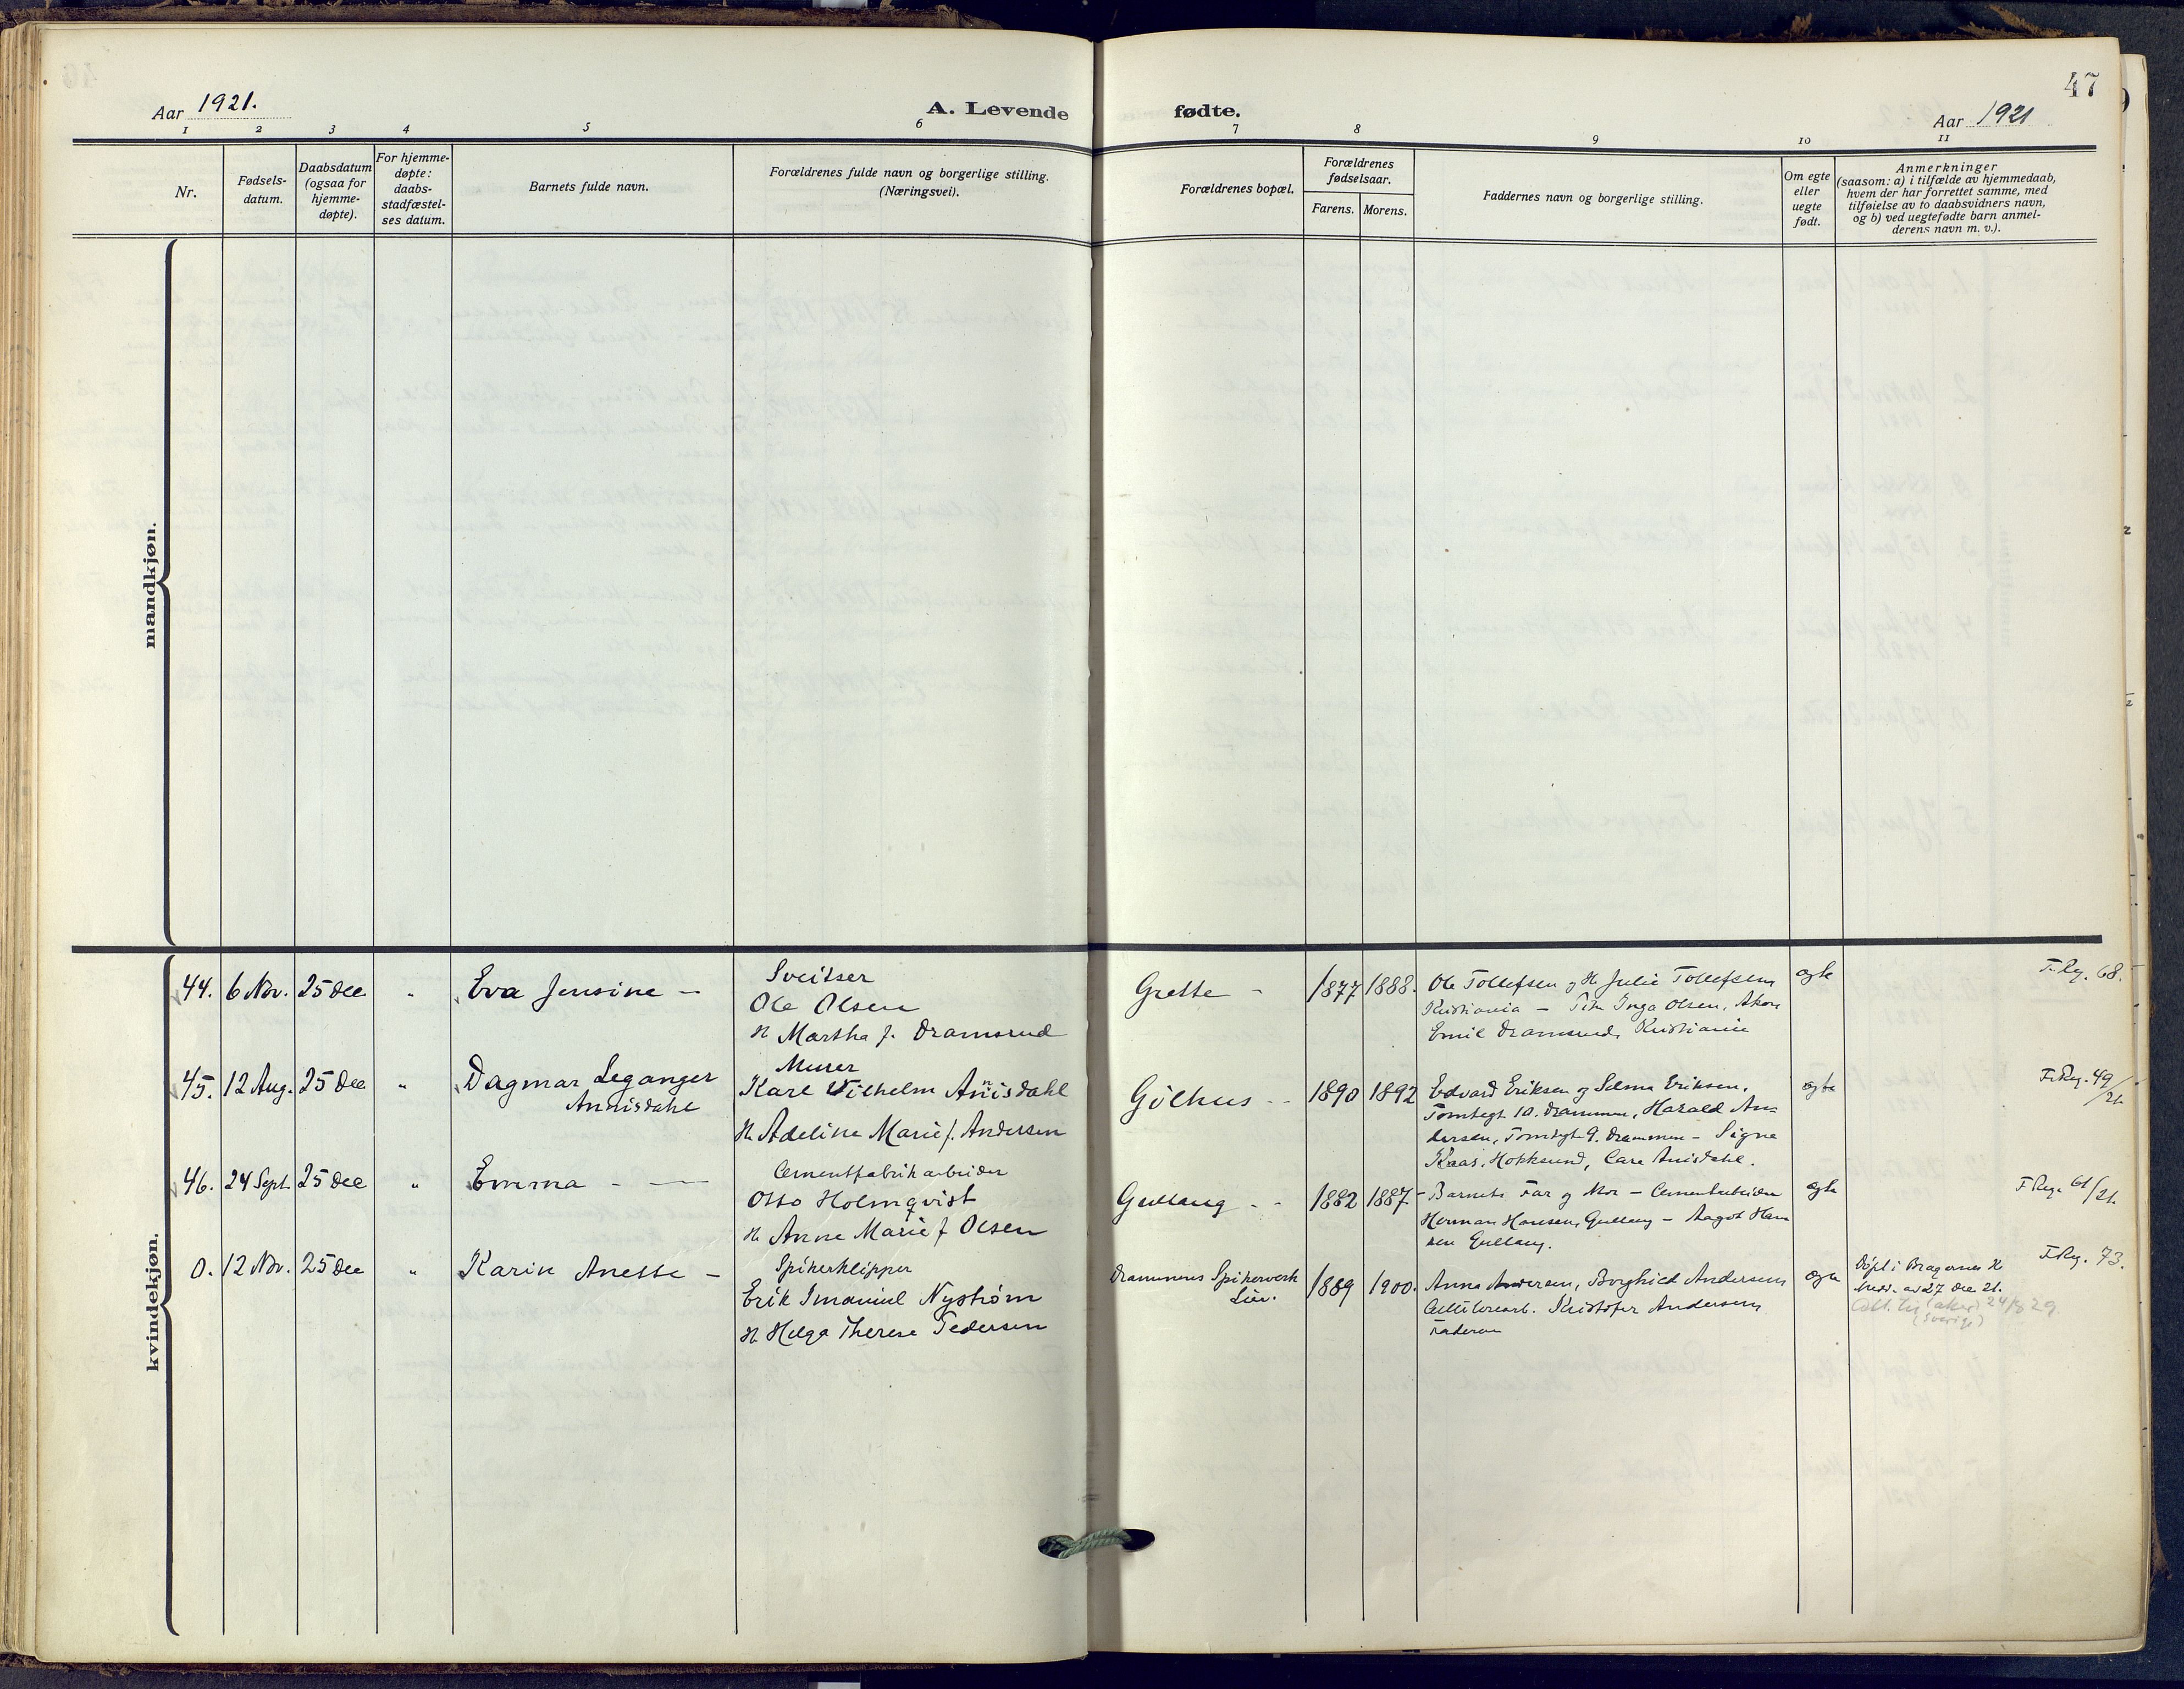 47
Aar 1921.
A. Levende fødte.
Aar 1921
1 2 3 4 5 6 7 8 9 10 11
Nr.
Fødsels-
datum.
Daabsdatum
(ogsaa for
hjemme-
døpte).
For hjemme-
døpte:
daabs-
stadfæstel-
ses datum.
Barnets fulde navn.
Forældrenes fulde navn og borgerlige stilling.
(Næringsvei).
Forældrenes bopæl.
Forældrenes
fødselsaar.
Farens. Morens.
Faddernes navn og borgerlige stilling.
Om egte
eller
uegte
født.
Anmerkninger
(saasom: a) i tilfælde av hjemmedaab,
hvem der har forrettet samme, med
tilføielse av to daabsvidners navn,
og b) ved uegtefødte barn anmel-
derens navn m. v.).
mandkjøn.
kvindekjøn.
44. 6 Nov. 25 Dec "
Eva Jensine —
Sveitser
Ole Olsen
H. Martha f. Dramsrud
Grette -
1877 1888.
Ole Tollefsen og H Julie Tollefsen
Kristiania — Inga Olsen,
Emil Dramsrud, Kristiania
egte
F. Reg. 68.
45. 12 Aug. 25 Dec "
Dagmar Leganger
Annisdahl
Murer
Karl Vilhelm Annisdahl
H. Adeline Marie f. Andersen
Gilhus - -
1890 1892
Edvard Eriksen og Selma Eriksen,
Tomtegt 10. Drammen, Harald An-
dersen, Tomtegt 9. Drammen - Signe
Kaas, Hokksund,
egte
F. Reg. 49/21.
46. 24 Sept. 25 Dec "
Emma - —
Cementfabrikarbeider
Otto Holmqvist
H. Anne Marie f Olsen
Gullaug - -
1882 1887
Barnets Far og Mor - Cementarbeider
Herman Hansen, Gullaug - Aagot Han
sen Gullaug.
egte
F. Reg. 61/21.
0. 12 Nov. 25 Dec "
Karin Anette —
Spikerklipper
Erik Imanuel Nystrøm
H. Helga Therese Pedersen
Drammens Spikerverk
Lier.
1889 1900.
Anna Andersen, Borghild Andersen
Kristofer Andersen
Faderen
egte
Døpt i Bragernes K
Medd. av 27 Dec 21.
24/8 29
(Sverige)
F. Reg. 73.